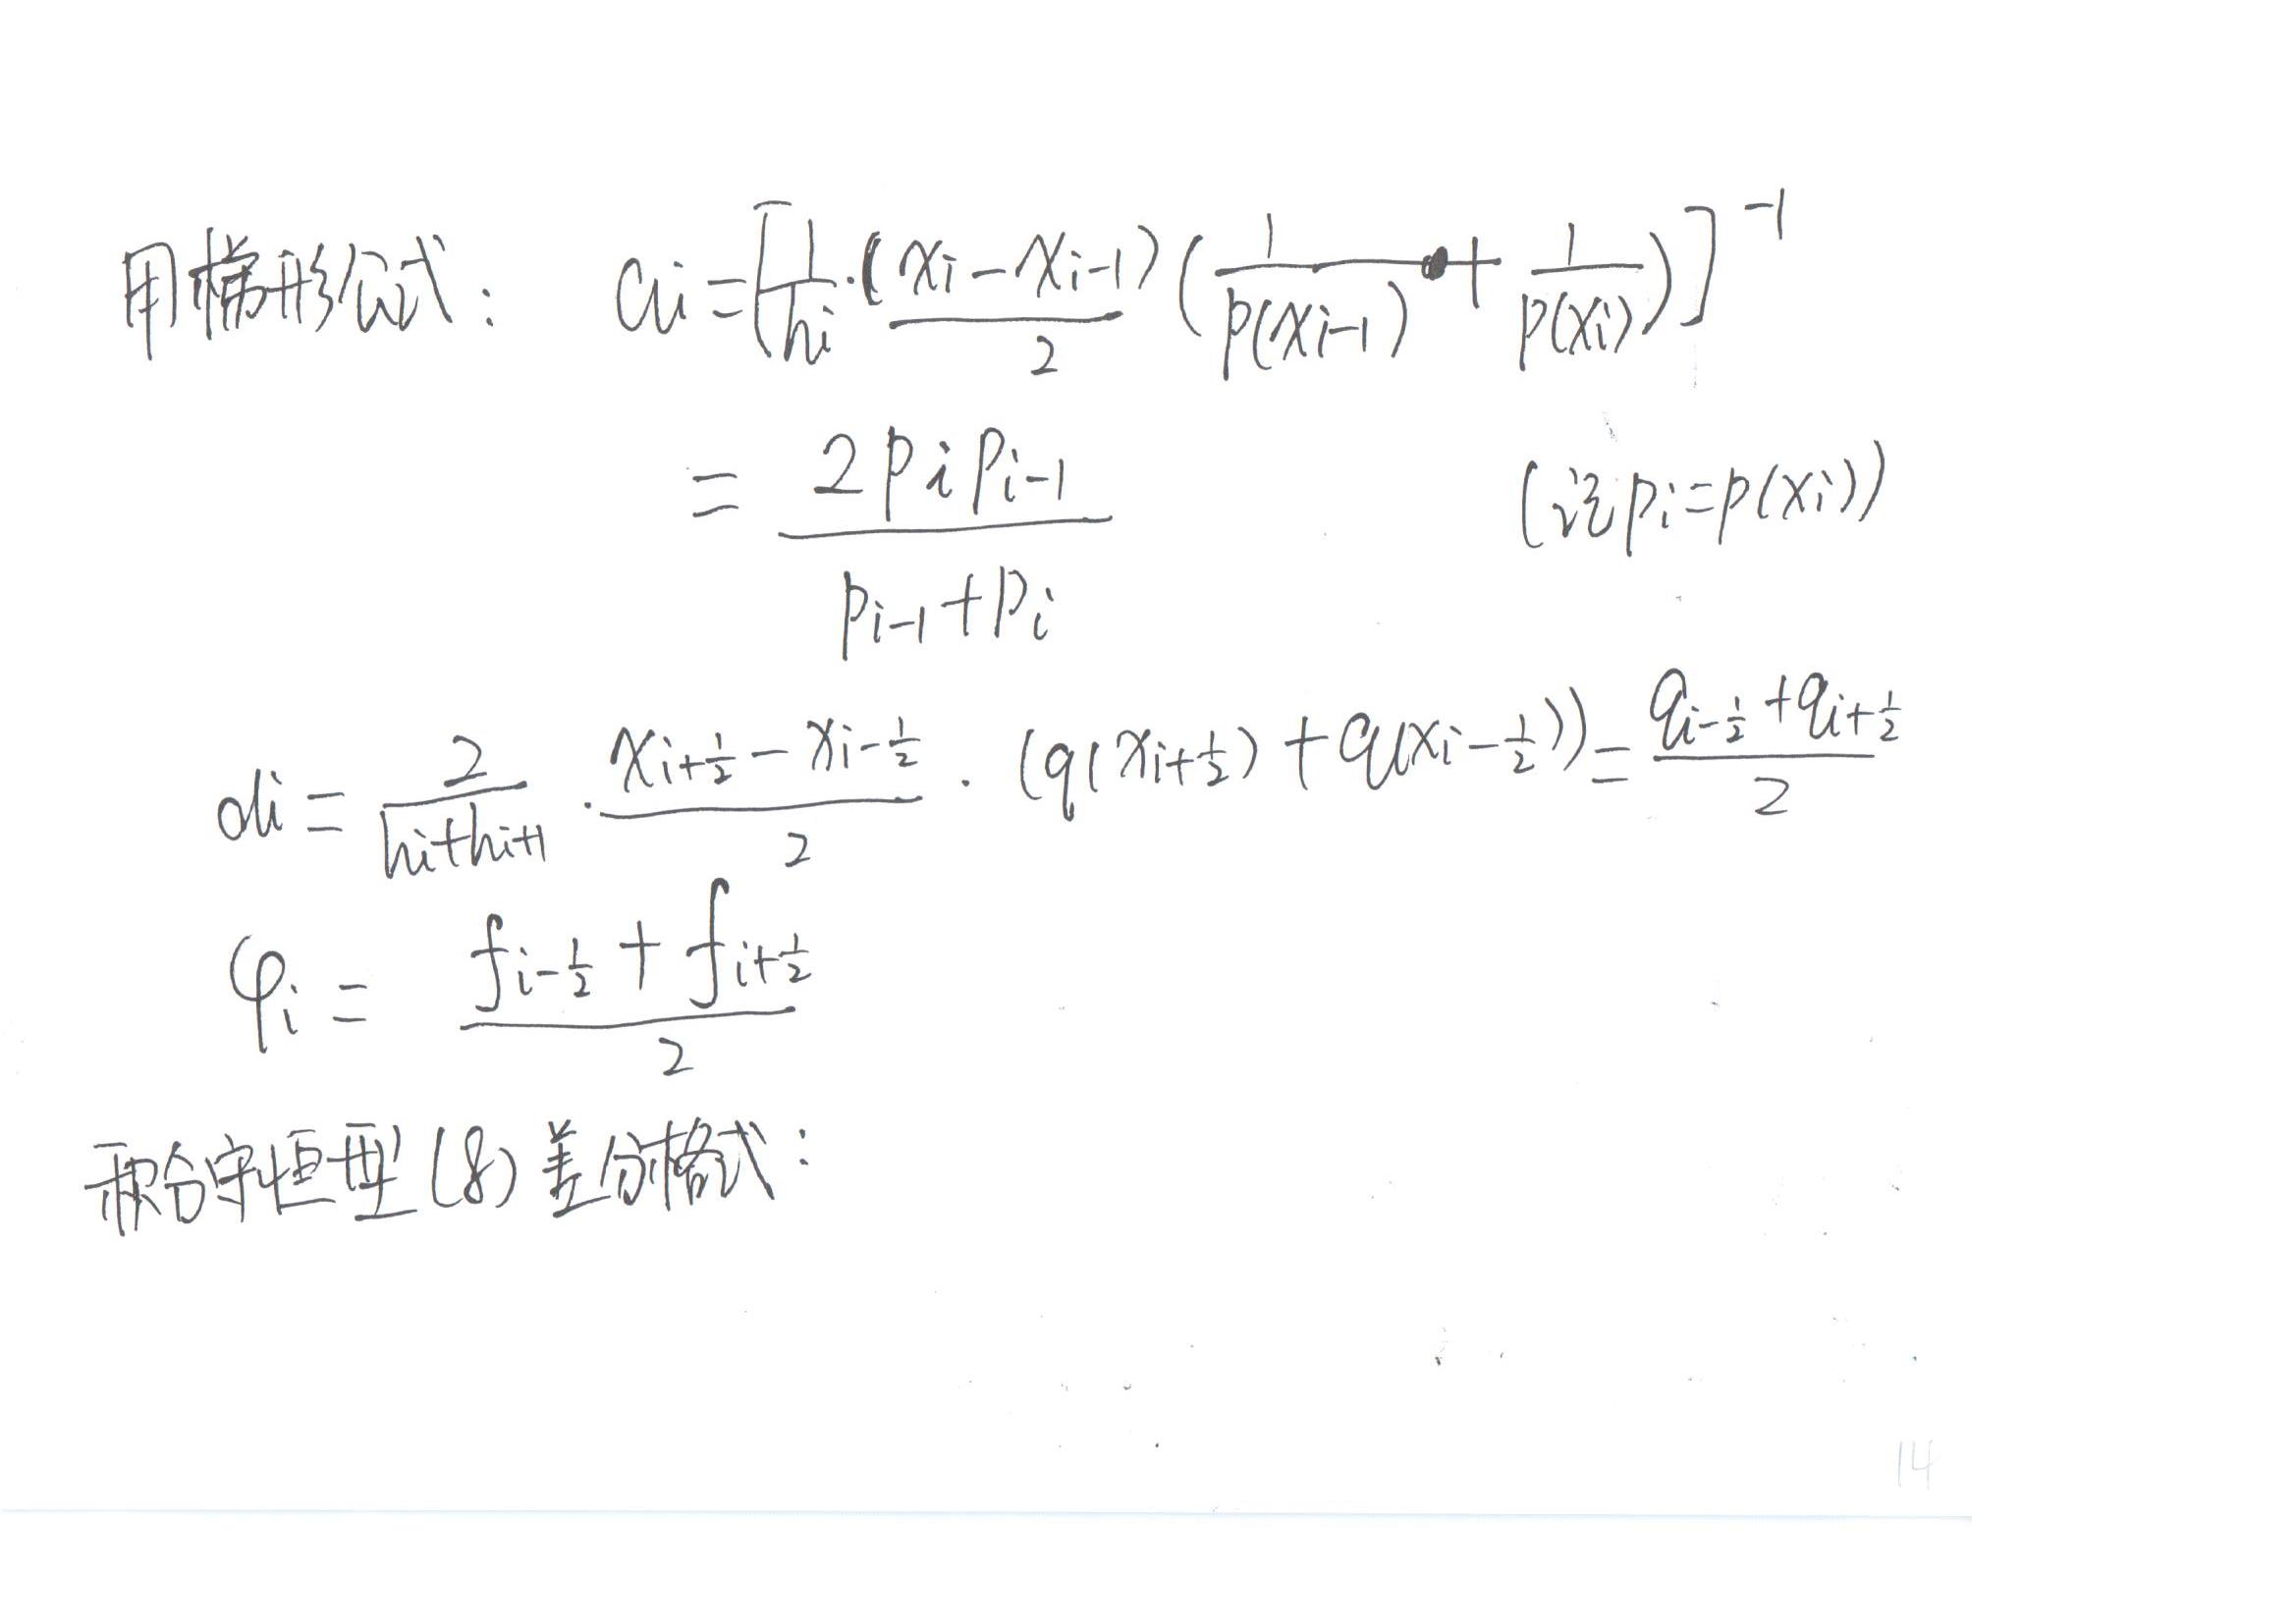 用梯形公式: ai = [1/hi · (xi − xi−1)/2 (1/p(xi−1) + 1/p(xi))]⁻¹
= 2pipi−1 / (pi−1 + pi) (记pi = p(xi))
di = 2/(hi + hi+1) · (xi+1/2 − xi−1/2)/2 · (q(xi+1/2) + q(xi−1/2)) = (qi−1/2 + qi+1/2)/2
φi = (fi−1/2 + fi+1/2)/2
积分守恒型(8)差分格式:
14